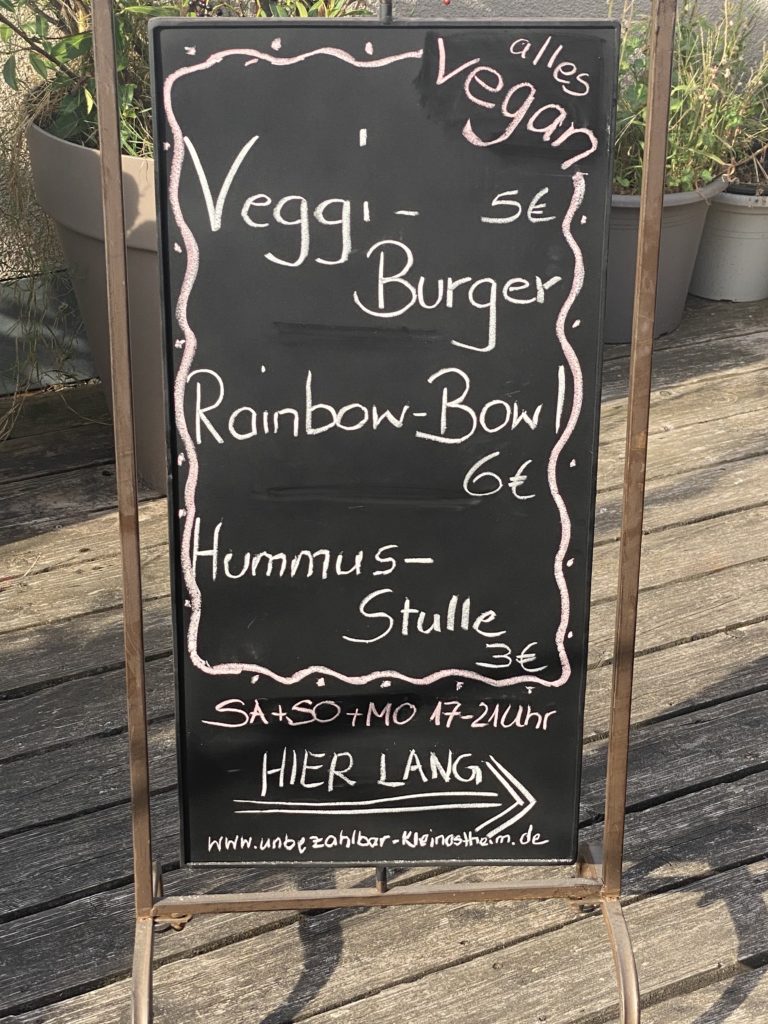 alles
vegan
Veggi- 5€
Burger
Rainbow-Bowl
6€
Hummus-
Stulle
3€
SA+SO+MO 17-21Uhr
HIER LANG
www.unbezahlbar-Kleinostheim.de